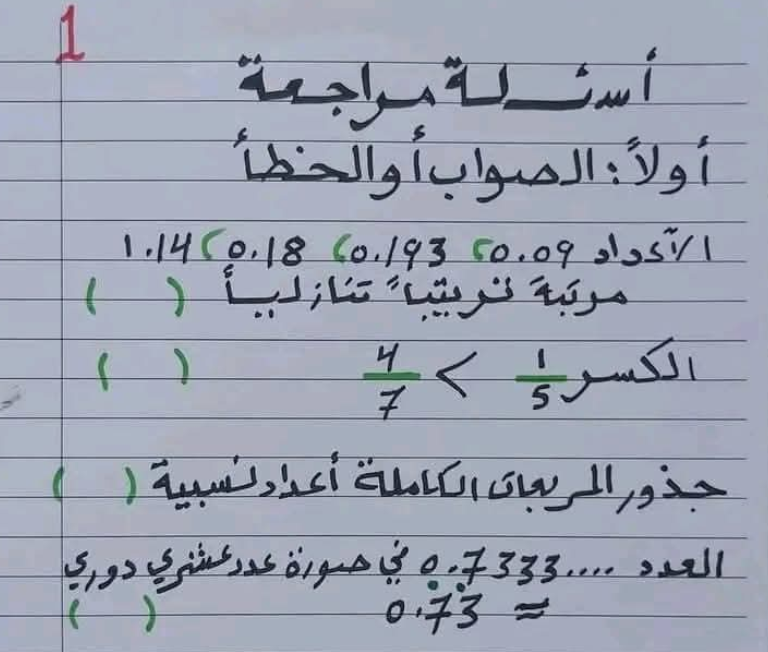 1
أسئلة مراجعة
أولاً: الصواب أو الخطأ
الأعداد 0.09، 0.193، 0.18، 1.14
مرتبة ترتيباً تنازلياً ( )
الكسر 1/5 > 4/7 ( )
جذور المربعات الكاملة أعداد نسبية ( )
العدد 0.7333.... في صورة عدد عشري دوري
≈ 0.7̇3̇ ( )